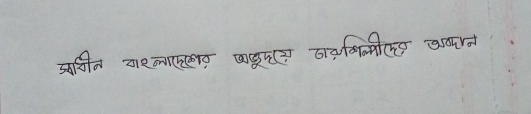 স্বাধীন বাংলাদেশের অভ্যুদয়ে চারুশিল্পীদের অবদান